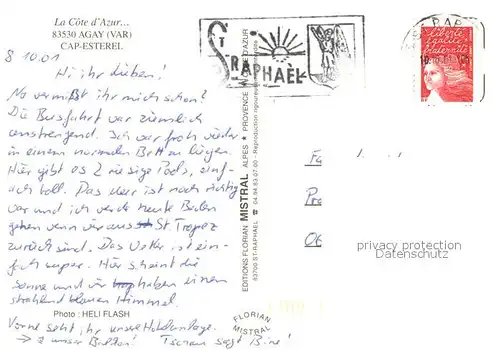 La Côte d'Azur...
83530 AGAY (VAR)
CAP-ESTEREL
8 10.01
Hi ihr Lieben!
Na vermißt ihr mich schon?
Die Busfahrt war ziemlich
anstrengend. Ich war froh wieder
in einem normalen Bett zu liegen.
Hier gibt es 2 riesige Pools, ein-
fach toll. Das Meer ist noch richtig
warm und ich werde heute Baden
gehen wenn wir aus St. Tropez
zurück sind. Das Wetter ist ein-
fach super. Hier scheint die
Sonne und wir haben einen
strahlend blauen Himmel.
Photo : HELI FLASH
Vorne seht ihr unsere Hotelanlage.
→ unser Tschau sagt
ST
RAPHAËL
EDITIONS FLORIAN MISTRAL ALPES ★ PROVENCE ★ CÔTE D'AZUR
83700 ST-RAPHAËL ☎ 04.94.83.07.00 - Reproduction rigoureusement interdite
FLORIAN
MISTRAL
RAP
liberté
égalité
fraternité
Fa
Pr
Ot
privacy protection
Datenschutz